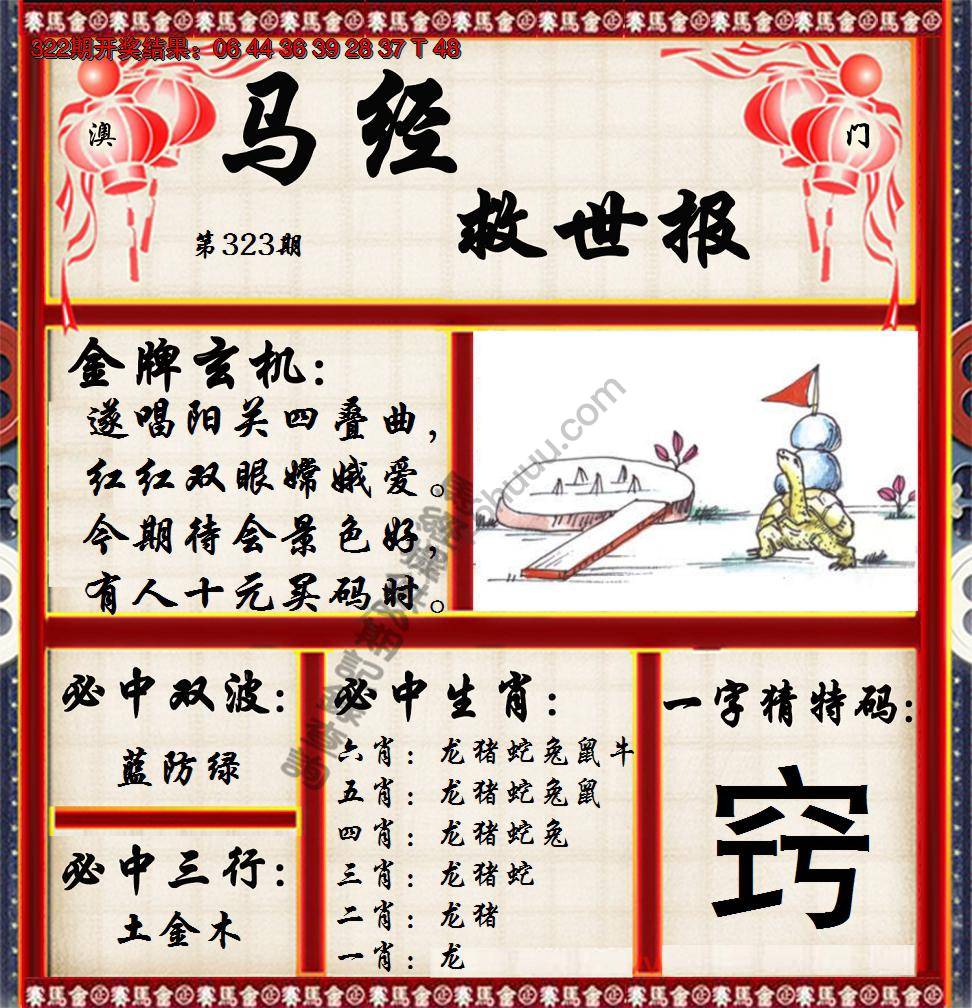 赛馬會
322期开奖结果：06 44 36 39 28 37 T 48
澳
门
马经
救世报
第323期
金牌玄机：
遂唱阳关四叠曲，
红红双眼嫦娥爱。
今期待会景色好，
有人十元买码时。
必中双波：
蓝防绿
必中三行：
土金木
必中生肖：
六肖：龙猪蛇兔鼠牛
五肖：龙猪蛇兔鼠
四肖：龙猪蛇兔
三肖：龙猪蛇
二肖：龙猪
一肖：龙
一字猜特码：
窍